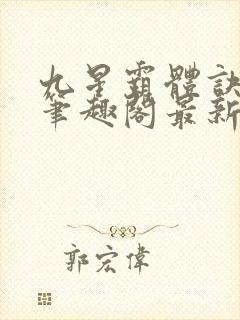 九星霸體訣
筆趣閣最新
郭宏偉